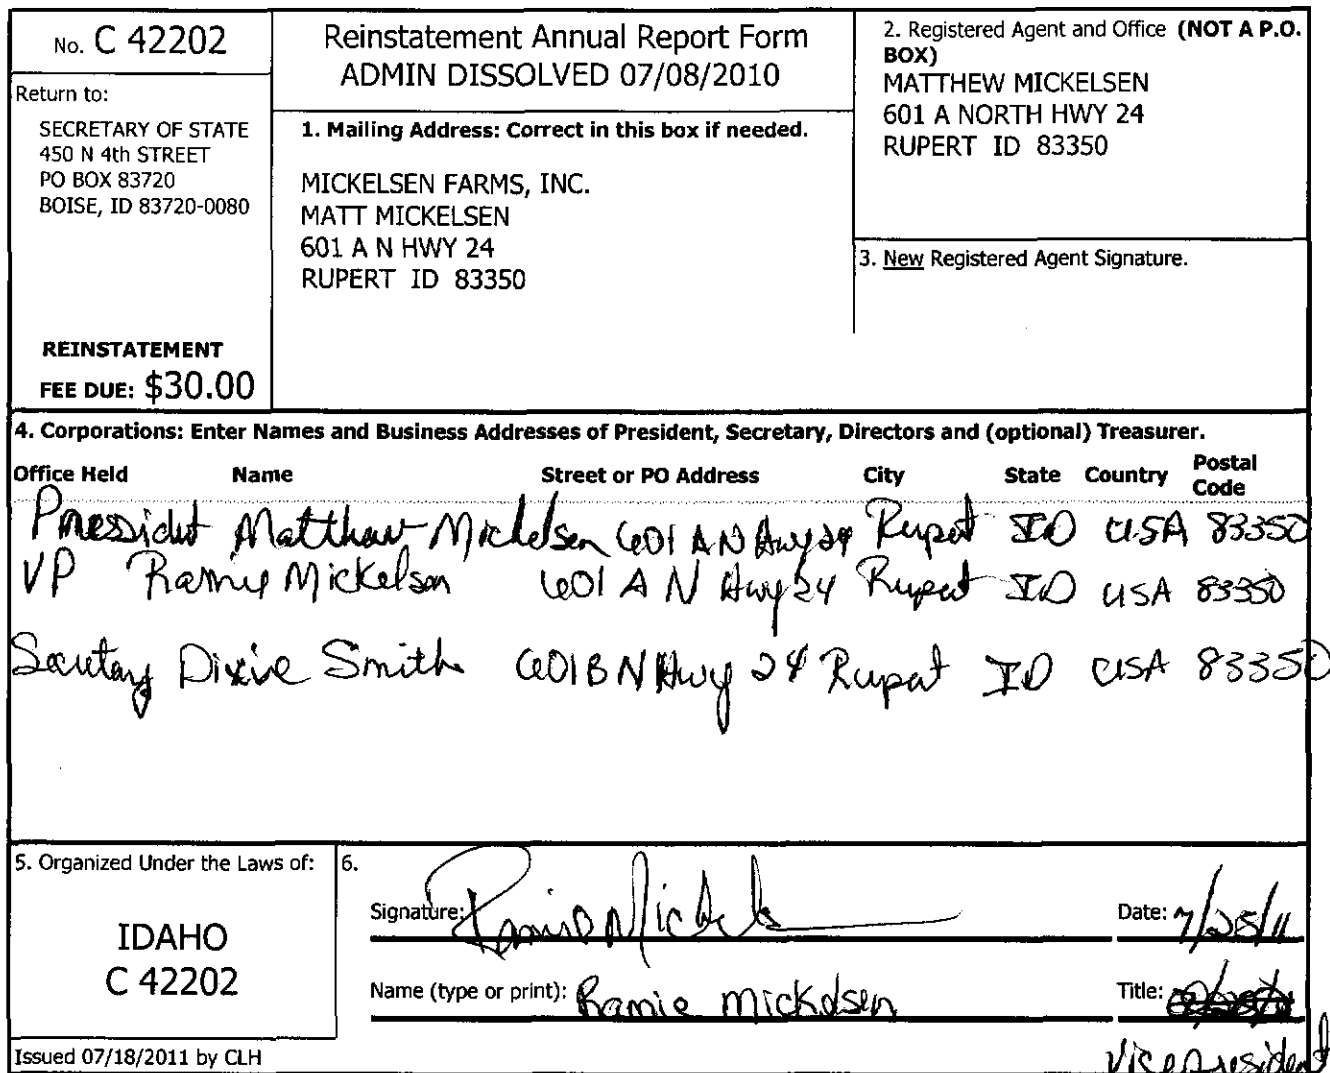 No. C 42202
Return to:
SECRETARY OF STATE
450 N 4th STREET
PO BOX 83720
BOISE, ID 83720-0080
REINSTATEMENT
FEE DUE: $30.00
Reinstatement Annual Report Form
ADMIN DISSOLVED 07/08/2010
1. Mailing Address: Correct in this box if needed.
MICKELSEN FARMS, INC.
MATT MICKELSEN
601 A N HWY 24
RUPERT ID 83350
2. Registered Agent and Office (NOT A P.O.
BOX)
MATTHEW MICKELSEN
601 A NORTH HWY 24
RUPERT ID 83350
3. New Registered Agent Signature.
4. Corporations: Enter Names and Business Addresses of President, Secretary, Directors and (optional) Treasurer.
Office Held Name Street or PO Address City State Country Postal Code
President Matthew Mickelsen 601 A N Hwy 24 Rupert ID USA 83350
VP Ramie Mickelsen 601 A N Hwy 24 Rupert ID USA 83350
Secretary Dixie Smith 601 B N Hwy 24 Rupert ID USA 83350
5. Organized Under the Laws of:
IDAHO
C 42202
Issued 07/18/2011 by CLH
6.
Signature: Ramie Mickelsen
Date: 7/25/11
Name (type or print): Ramie Mickelsen
Title:
Vice President